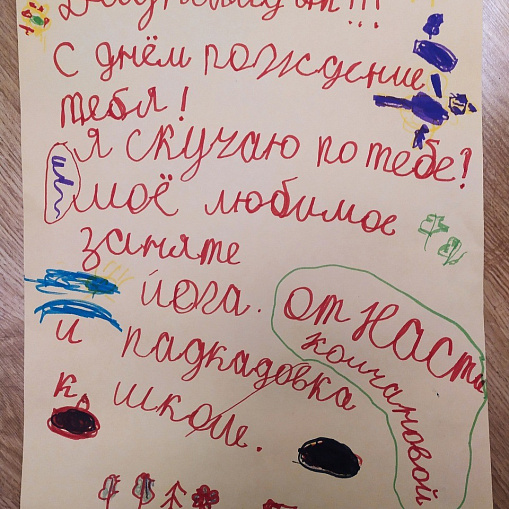 с днём пождение
тебя!
я скучаю по тебе!
моё любимое
заняте
йога.
и падкадовка
к школе.
от Насти
колчановой